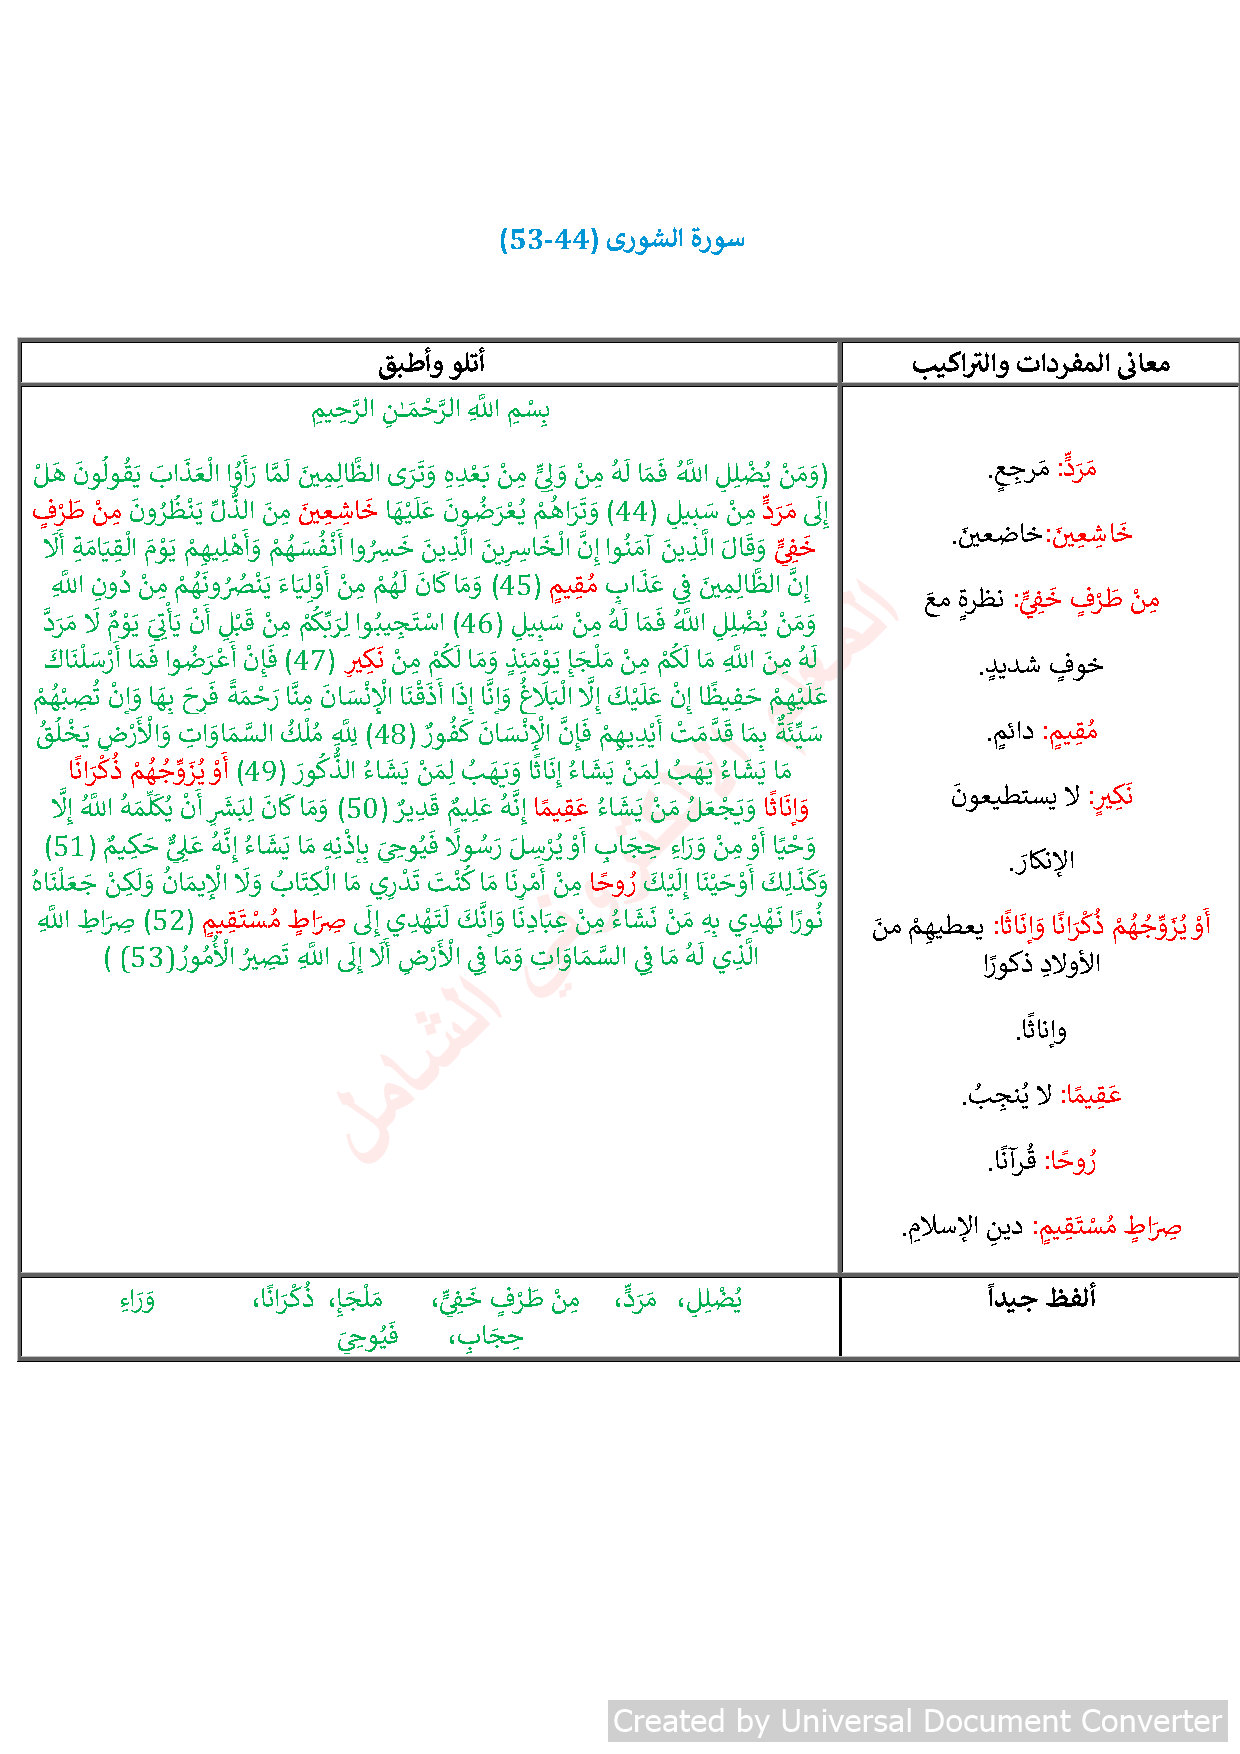 سورة الشورى (44-53)
معاني المفردات والتراكيب
أتلو وأطبق
مَرَدٍّ: مَرجِعٍ.
خَاشِعِينَ:خاضعينَ.
مِنْ طَرْفٍ خَفِيٍّ: نظرةٍ معَ
خوفٍ شديدٍ.
مُقِيمٍ: دائمٍ.
نَكِيرٍ: لا يستطيعونَ
الإنكارَ.
أَوْ يُزَوِّجُهُمْ ذُكْرَانًا وَإِنَاثًا: يعطيهِمْ منَ
الأولادِ ذكورًا
وإناثًا.
عَقِيمًا: لا يُنجِبُ.
رُوحًا: قُرآنًا.
صِرَاطٍ مُسْتَقِيمٍ: دينِ الإسلامِ.
بِسْمِ اللَّهِ الرَّحْمَـٰنِ الرَّحِيمِ
(وَمَنْ يُضْلِلِ اللَّهُ فَمَا لَهُ مِنْ وَلِيٍّ مِنْ بَعْدِهِ وَتَرَى الظَّالِمِينَ لَمَّا رَأَوُا الْعَذَابَ يَقُولُونَ هَلْ
إِلَى مَرَدٍّ مِنْ سَبِيلٍ (44) وَتَرَاهُمْ يُعْرَضُونَ عَلَيْهَا خَاشِعِينَ مِنَ الذُّلِّ يَنْظُرُونَ مِنْ طَرْفٍ
خَفِيٍّ وَقَالَ الَّذِينَ آمَنُوا إِنَّ الْخَاسِرِينَ الَّذِينَ خَسِرُوا أَنْفُسَهُمْ وَأَهْلِيهِمْ يَوْمَ الْقِيَامَةِ أَلَا
إِنَّ الظَّالِمِينَ فِي عَذَابٍ مُقِيمٍ (45) وَمَا كَانَ لَهُمْ مِنْ أَوْلِيَاءَ يَنْصُرُونَهُمْ مِنْ دُونِ اللَّهِ
وَمَنْ يُضْلِلِ اللَّهُ فَمَا لَهُ مِنْ سَبِيلٍ (46) اسْتَجِيبُوا لِرَبِّكُمْ مِنْ قَبْلِ أَنْ يَأْتِيَ يَوْمٌ لَا مَرَدَّ
لَهُ مِنَ اللَّهِ مَا لَكُمْ مِنْ مَلْجَإٍ يَوْمَئِذٍ وَمَا لَكُمْ مِنْ نَكِيرٍ (47) فَإِنْ أَعْرَضُوا فَمَا أَرْسَلْنَاكَ
عَلَيْهِمْ حَفِيظًا إِنْ عَلَيْكَ إِلَّا الْبَلَاغُ وَإِنَّا إِذَا أَذَقْنَا الْإِنْسَانَ مِنَّا رَحْمَةً فَرِحَ بِهَا وَإِنْ تُصِبْهُمْ
سَيِّئَةٌ بِمَا قَدَّمَتْ أَيْدِيهِمْ فَإِنَّ الْإِنْسَانَ كَفُورٌ (48) لِلَّهِ مُلْكُ السَّمَاوَاتِ وَالْأَرْضِ يَخْلُقُ
مَا يَشَاءُ يَهَبُ لِمَنْ يَشَاءُ إِنَاثًا وَيَهَبُ لِمَنْ يَشَاءُ الذُّكُورَ (49) أَوْ يُزَوِّجُهُمْ ذُكْرَانًا
وَإِنَاثًا وَيَجْعَلُ مَنْ يَشَاءُ عَقِيمًا إِنَّهُ عَلِيمٌ قَدِيرٌ (50) وَمَا كَانَ لِبَشَرٍ أَنْ يُكَلِّمَهُ اللَّهُ إِلَّا
وَحْيًا أَوْ مِنْ وَرَاءِ حِجَابٍ أَوْ يُرْسِلَ رَسُولًا فَيُوحِيَ بِإِذْنِهِ مَا يَشَاءُ إِنَّهُ عَلِيٌّ حَكِيمٌ (51)
وَكَذَلِكَ أَوْحَيْنَا إِلَيْكَ رُوحًا مِنْ أَمْرِنَا مَا كُنْتَ تَدْرِي مَا الْكِتَابُ وَلَا الْإِيمَانُ وَلَكِنْ جَعَلْنَاهُ
نُورًا نَهْدِي بِهِ مَنْ نَشَاءُ مِنْ عِبَادِنَا وَإِنَّكَ لَتَهْدِي إِلَى صِرَاطٍ مُسْتَقِيمٍ (52) صِرَاطِ اللَّهِ
الَّذِي لَهُ مَا فِي السَّمَاوَاتِ وَمَا فِي الْأَرْضِ أَلَا إِلَى اللَّهِ تَصِيرُ الْأُمُورُ(53) )
ألفظ جيداً
يُضْلِلِ، مَرَدٍّ، مِنْ طَرْفٍ خَفِيٍّ، مَلْجَإٍ، ذُكْرَانًا، وَرَاءِ
حِجَابٍ، فَيُوحِيَ
الشامل
Created by Universal Document Converter